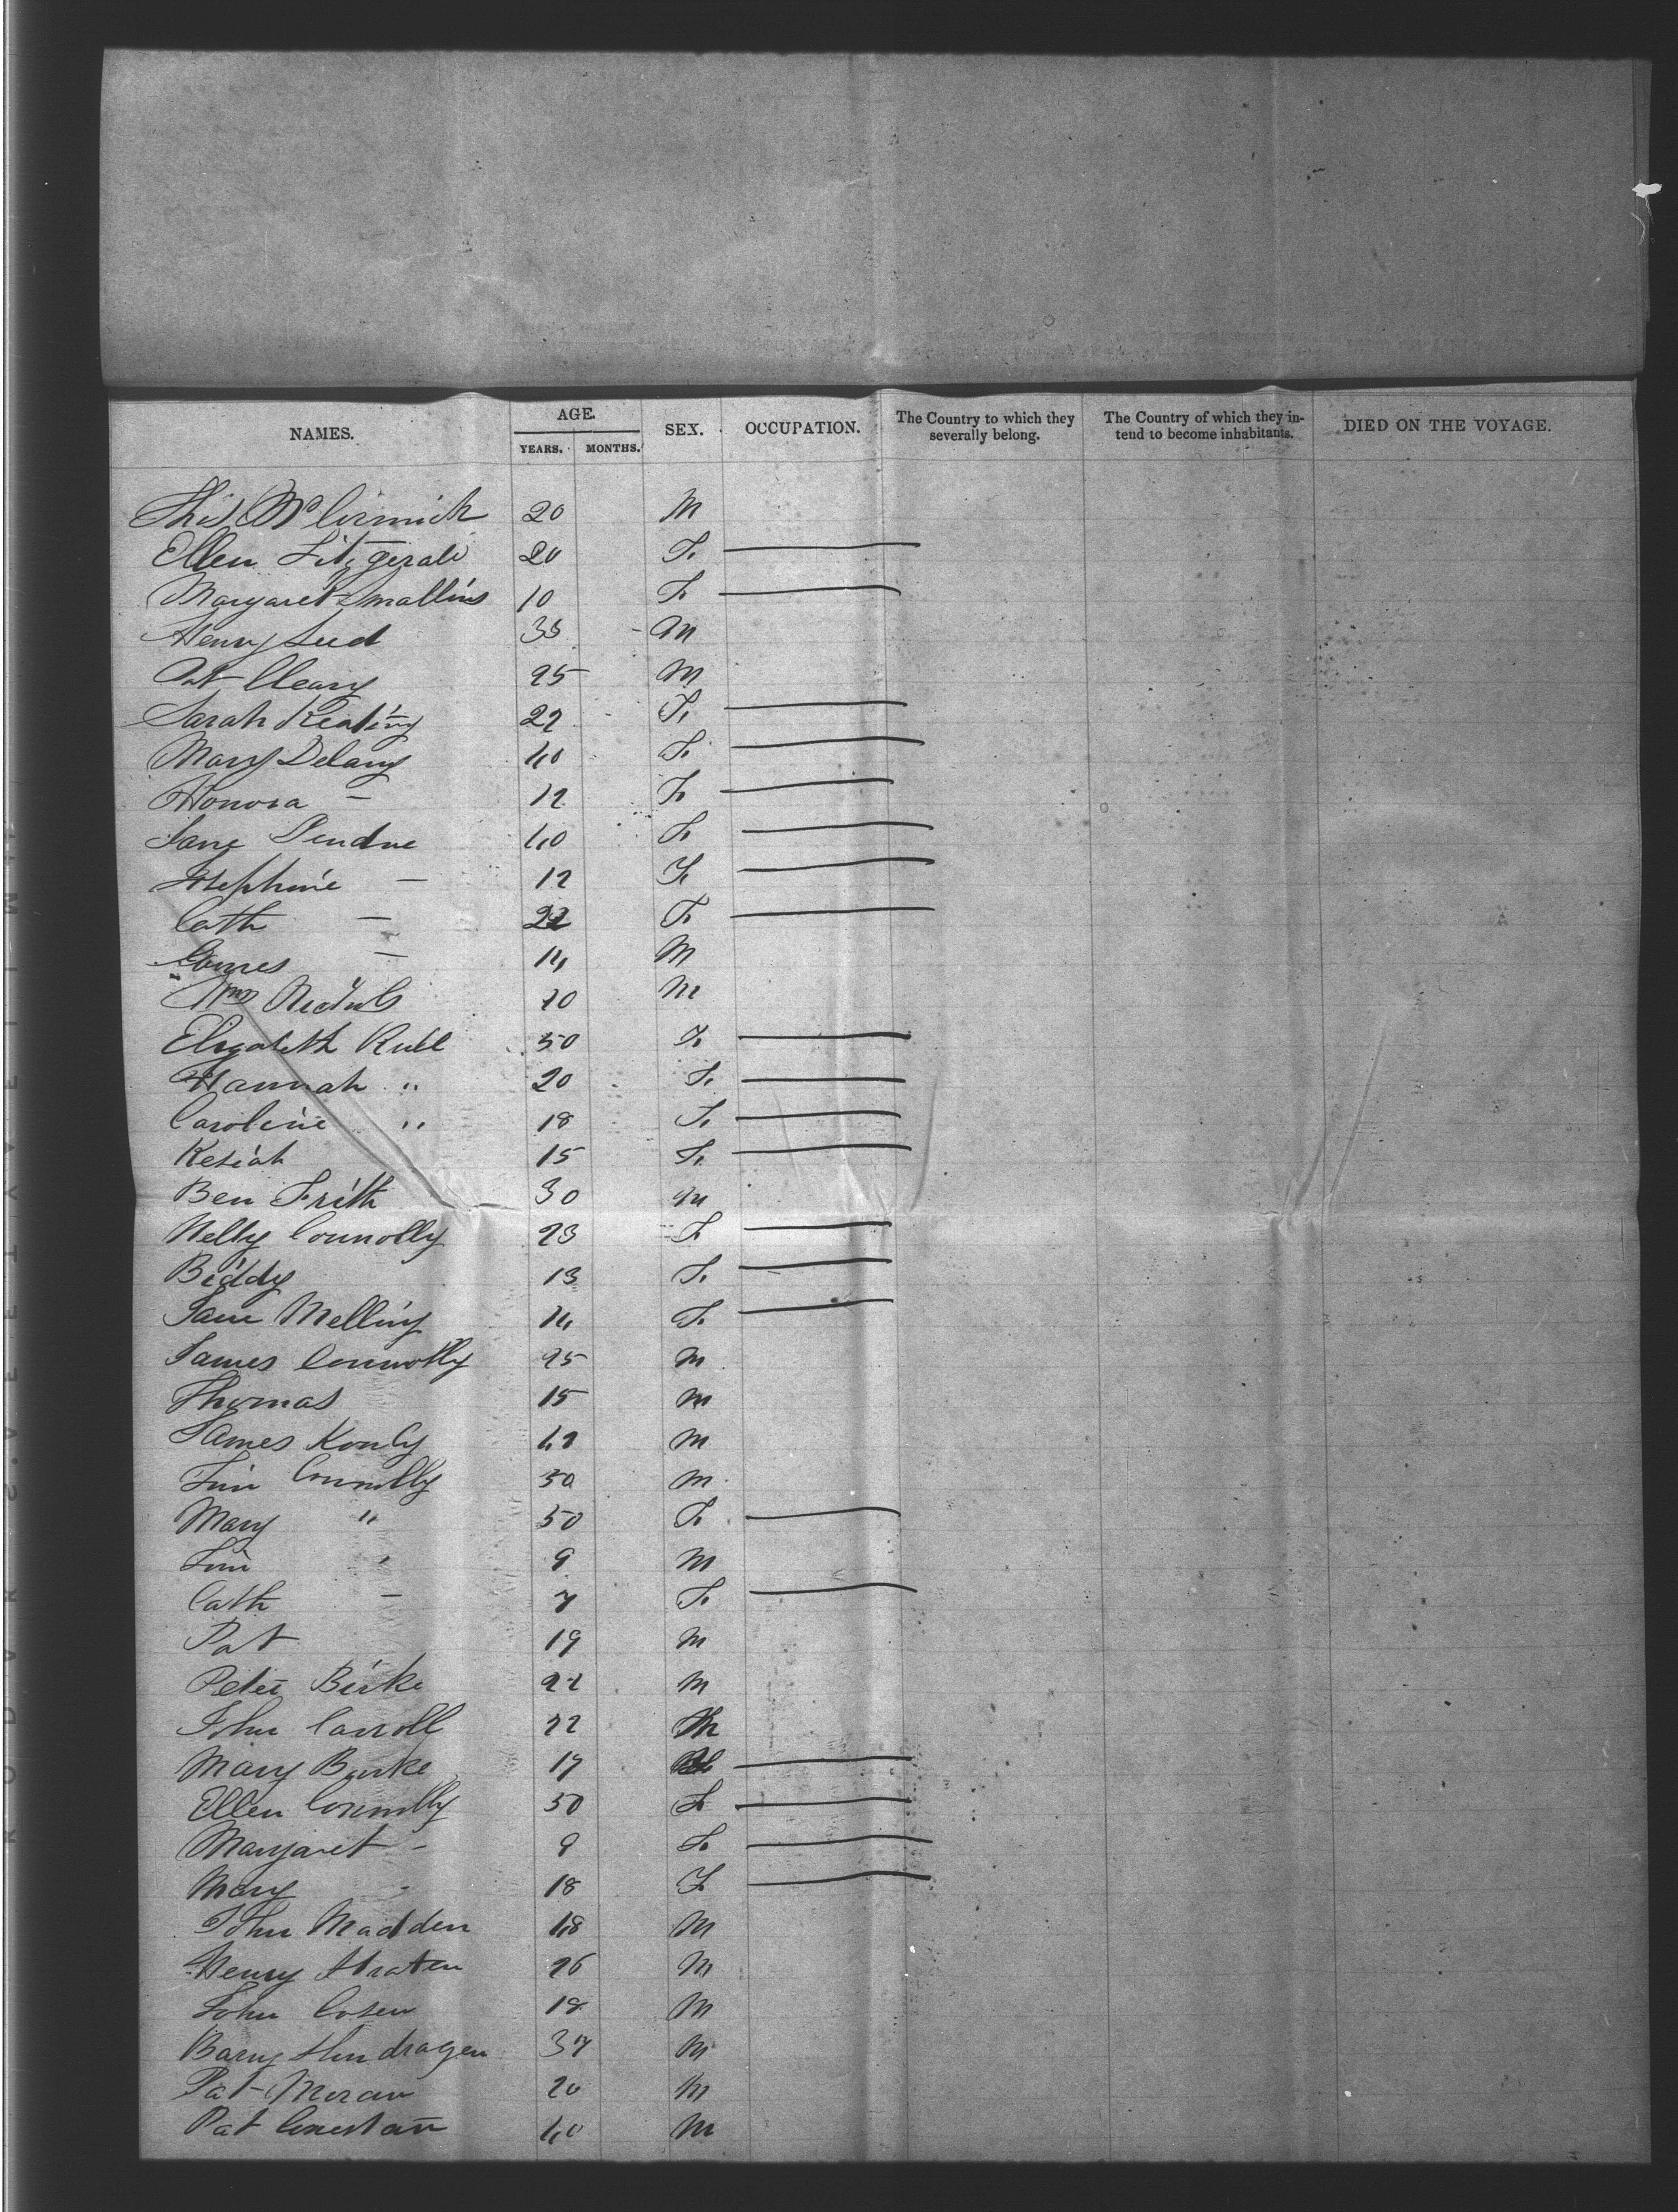 NAMES. AGE. YEARS. MONTHS. SEX. OCCUPATION. The Country to which they severally belong. The Country of which they intend to become inhabitants. DIED ON THE VOYAGE.
Thos McCormick 20 M
Ellen Fitzgerald 20 F.
Margaret Smallins 10 F.
Henry 35 M
Pat Cleary 25 M
Sarah Keating 22 F.
Mary Delany 40 F.
Honora - 12 F.
Jane 40 F.
Josephine - 12 F.
Cath - 22 F.
James - 14 M
Wm M
Elizabeth Rull 50 F.
Hannah " 20 F.
Caroline " 18 F.
Kesiah 15 F.
Ben Frith 30 M
Nelly Connolly 23 F.
Biddy 13 F.
Jane Melling 14 F.
James Connolly 25 M
Thomas 15 M
James Konly M
Tim Connolly 50 M
Mary " 50 F.
Tim " 9 M
Cath - 7 F.
Pat 19 M
Peter Birke 22 M
John Carroll 22 M
Mary Burke 17
Ellen Connolly 50 F.
Margaret - 9 F.
Mary - 18 F.
John Madden 48 M
Henry Straten 26 M
John Cosen 18 M
Barny 37 M
Pat Moran 20 M
Pat 40 M